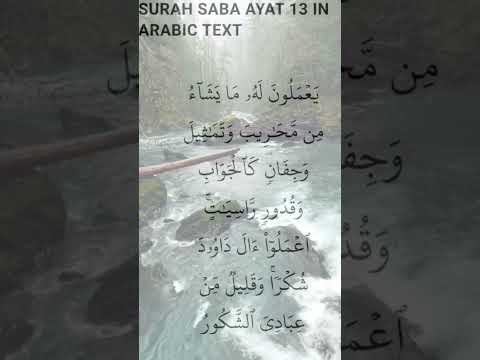 SURAH SABA AYAT 13 IN
ARABIC TEXT
يَعْمَلُونَ لَهُۥ مَا يَشَآءُ
مِن مَّحَـٰرِيبَ وَتَمَـٰثِيلَ
وَجِفَانٍ كَٱلْجَوَابِ
وَقُدُورٍ رَّاسِيَـٰتٍ ۚ
ٱعْمَلُوٓا۟ ءَالَ دَاوُۥدَ
شُكْرًا ۚ وَقَلِيلٌ مِّنْ
عِبَادِىَ ٱلشَّكُورُ